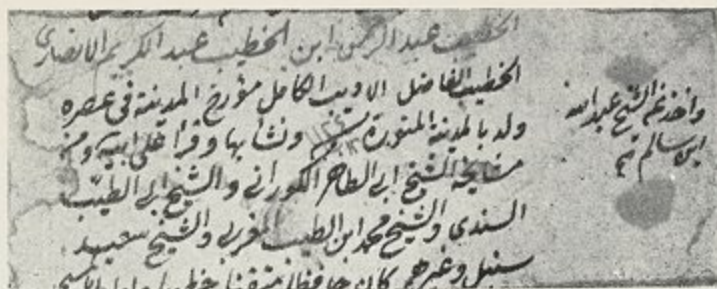 الخطيب عبد الرحمن ابن الخطيب عبد الكريم الانصاري
الخطيب الفاضل الاديب الكامل مؤرخ المدينة في عصره
ولد بالمدينة المنورة ١١٢٤ ونشأ بها وقرأ على ابيه ومن
مشايخه الشيخ ابي الطاهر الكوراني والشيخ ابي الطيب
السندي والشيخ محمد ابن الطيب المغربي والشيخ سعيد
سنبل وغيرهم كان حافظا متقنا خطيبا
واخذ عن الشيخ عبد الله
ابن سالم